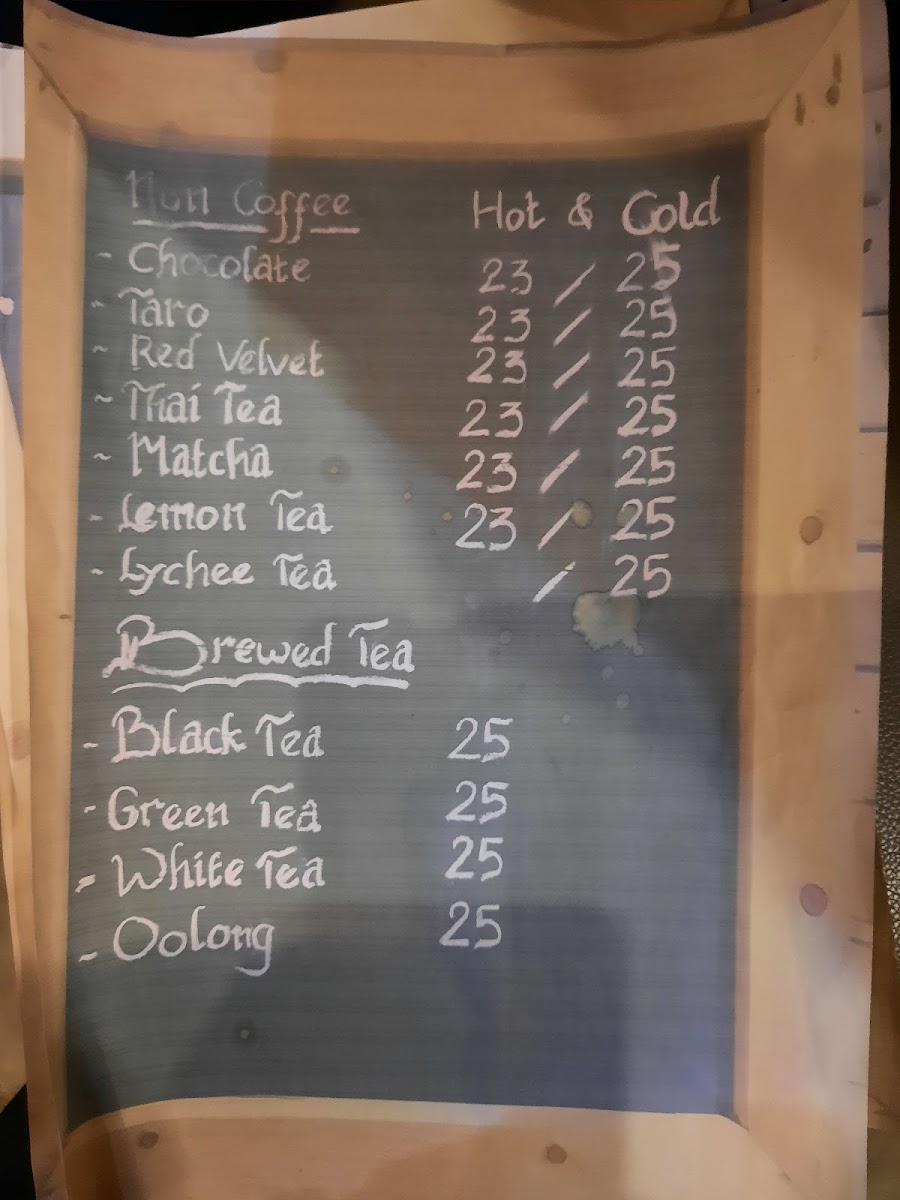 Non Coffee Hot & Cold
- Chocolate 23 / 25
- Taro 23 / 25
~ Red Velvet 23 / 25
~ Thai Tea 23 / 25
~ Matcha 23 / 25
- Lemon Tea 23 / 25
- Lychee Tea / 25
Brewed Tea
- Black Tea 25
- Green Tea 25
- White Tea 25
- Oolong 25